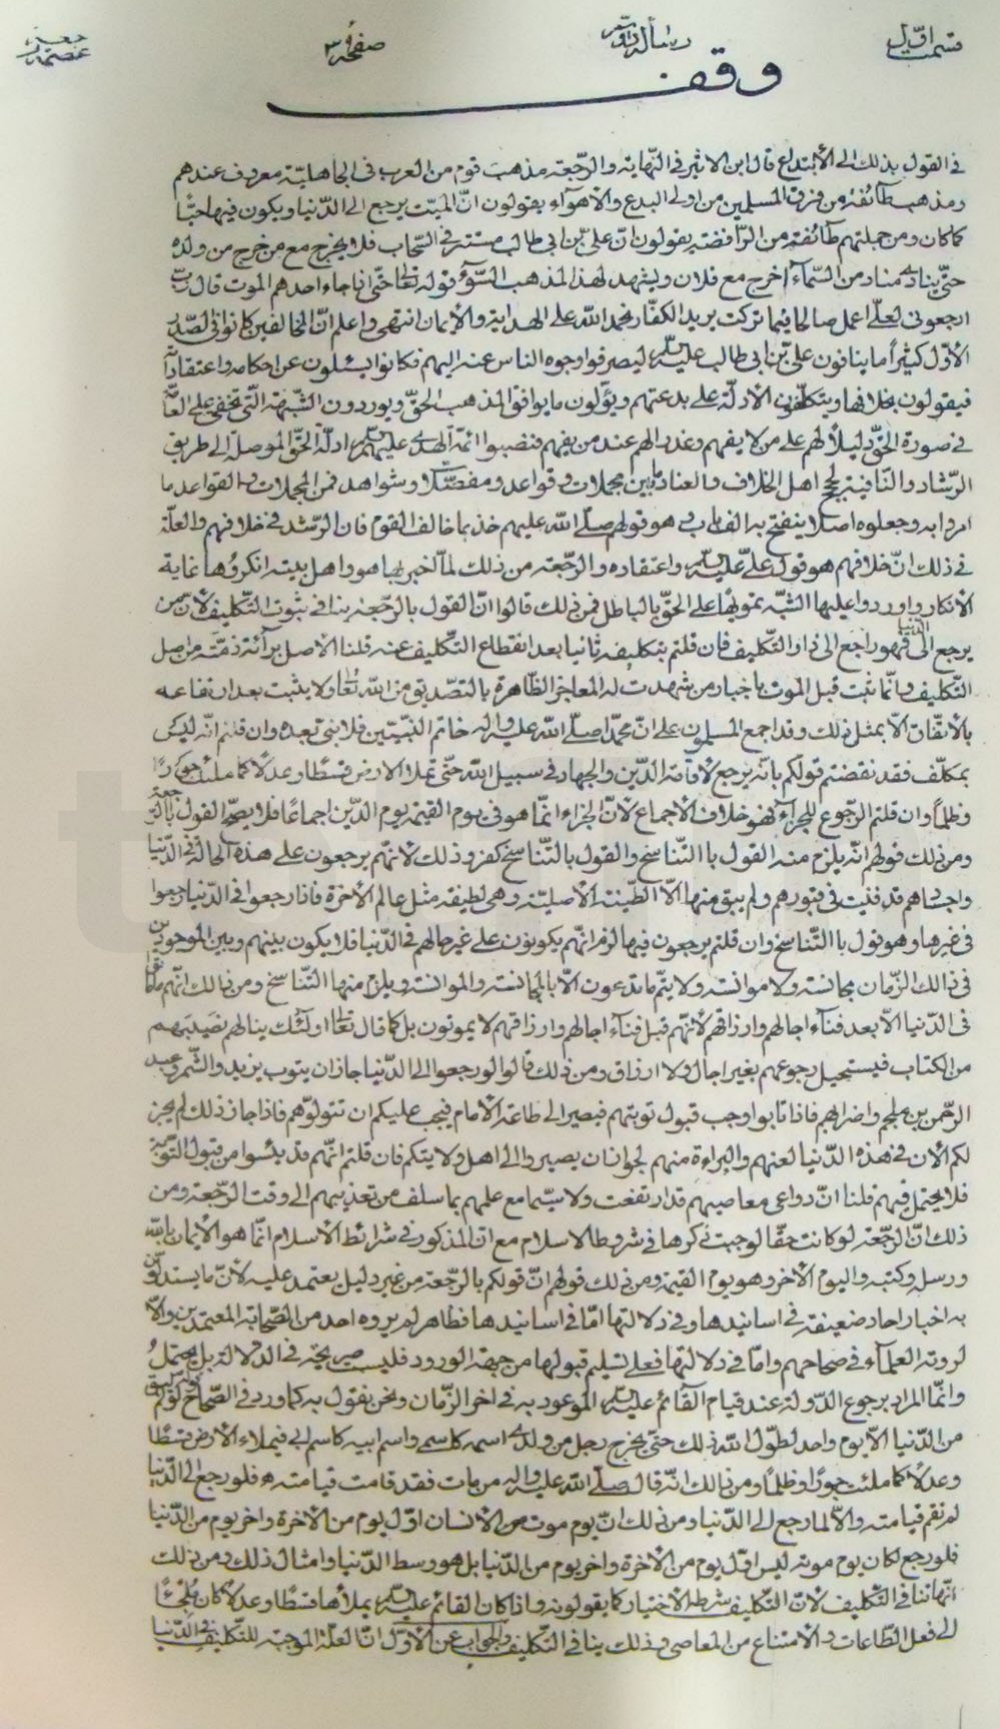 قسمت اوّل رسالة صفحهٔ
وقف
في القول بذلك الى الأبتداع قال ابن الاثير في النّهاية والرّجعة مذهب قوم من العرب في الجاهليّة معروف عندهم
ومذهب طائفة من فرق المسلمين من اولى البدع والأهوآء يقولون انّ الميّت يرجع الى الدّنيا ويكون فيها حيّا
كما كان ومن جملتهم طائفة من الرّافضة يقولون انّ علىّ بن ابي طالب مستتر في السّحاب فلا يخرج مع من خرج من ولده
حتّى ينادى مناد من السّمآء اخرج مع فلان ويشهد لهذا المذهب السّوء قوله تعالى حتّى اذا جاء احدهم الموت قال ربّ
ارجعونى لعلّى اعمل صالحا فيما تركت يريد الكفّار نحمد الله على الهداية والأيمان انتهى واعلم انّ المخالفين كانوا في الصّدر
الأوّل كثيراً ما ينافون علىّ بن ابي طالب عليه السّلام ليصرفوا وجوه الناس عنه اليهم فكانوا يسئلون عن احكامه واعتقاداته
فيقولون بخلافها ويتكلّفون الأدلّة على بدعتهم ويؤلون ما يوافق المذهب الحقّ ويوردون الشّبهة الّتي تخفى على العامّة
في صورة الحقّ دليلاً لهم على من لا يفهم وعذراً لهم عند من يفهم فنصبوا ائمّة الهدى عليهم السّلام ادلّة الحقّ الموصلة الى طريق
الرّشاد والنّافية لحجج اهل الخلاف والعناد ما بين مجملات وقواعد ومفصّلات وشواهد فمن المجملات والقواعد ما
امروا به وجعلوه اصلا ينفتح به الف باب وهو قولهم صلّى الله عليهم خذ بما خالف القوم فان الرّشد في خلافهم والعلّة
في ذلك انّ خلافهم هو قول علىّ عليه السّلام واعتقاده والرّجعة من ذلك لمّا اخبر بها هو واهل بيته انكروها غاية
الأنكار واوردوا عليها الشّبه تمويهًا على الحقّ بالباطل فمن ذلك قالوا انّ القول بالرّجعة ينافي ثبوت التّكليف لأنّ من
يرجع الى الدّنيا فهو راجع الى دار التّكليف فان قلتم بتكليفه ثانيا بعد انقطاع التّكليف عنه قلنا الأصل برآئة ذمّته من اصل
التّكليف وانّما ثبت قبل الموت باخبار من شهدت له المعاجز الظّاهرة بالتّصديق من الله تعالى ولا يثبت بعد ارتفاعه
بالأتّفاق الّا بمثل ذلك وقد اجمع المسلمون على انّ محمّدا صلّى الله عليه وآله خاتم النّبيّين فلا نبىّ بعده وان قلتم انّه ليس
بمكلّف فقد نقضتم قولكم بانّه يرجع لأقامة الدّين والجهاد في سبيل الله حتّى تملأ الأرض قسطًا وعدلًا كما ملئت جورًا
وظلماً وان قلتم الرّجوع للجزآء فهو خلاف الأجماع لأنّ الجزاء انّما هو في يوم القيمة يوم الدّين اجماعًا فلا يصحّ القول بالرّجعة
ومن ذلك قولهم انّه يلزم منه القول بالتّناسخ والقول بالتّناسخ كفر وذلك لأنّهم يرجعون على هذه الحالة في الدّنيا
واجسادهم قد فنيت في قبورهم ولم يبق منها الّا الطّينة الأصليّة وهي لطيفة مثل عالم الأخرة فاذا رجعوا في الدّنيا رجعوا
في غيرها وهو قول بالتّناسخ وان قلتم يرجعون فيها لزم انّهم يكونون على غير حالهم في الدّنيا فلا يكون بينهم وبين الموجودين
في ذلك الزّمان مجانسة ولا موانسة ولا يتمّ ما تدعون الّا بالمجانسة والموانسة ويلزم منها التّناسخ ومن ذلك انّهم ما ماتوا
في الدّنيا الّا بعد فنآء اجالهم وارزاقهم لأنّهم قبل فنآء اجالهم وارزاقهم لا يموتون بل كما قال تعالى اولئك ينالهم نصيبهم
من الكتاب فيستحيل رجوعهم بغير اجال ولا ارزاق ومن ذلك قالوا لو رجعوا الى الدّنيا جاز ان يتوب يزيد والشّمر وعبد
الرّحمن بن ملجم واضرابهم فاذا تابوا وجب قبول توبتهم فيصير الى طاعة الأمام فيجب عليكم ان تتولّوهم فاذا جاز ذلك لم يجز
لكم الأن في هذه الدّنيا لعنهم والبراءة منهم لجواز ان يصيروا الى اهل ولايتكم فان قلتم انّهم قد يئسوا من قبول التّوبة
فلا يحتمل فيهم قلنا انّ دواعى معاصيهم قد ارتفعت ولا سيّما مع علمهم بما سلف من تعذيبهم الى وقت الرّجعة ومن
ذلك انّ الرّجعة لو كانت حقّا لوجب ذكرها في شروط الاسلام مع انّ المذكور في شرائط الاسلام انّما هو الأيمان بالله
ورسله وكتبه واليوم الأخر وهو يوم القيمة ومن ذلك قولهم انّ قولكم بالرّجعة من غير دليل يعتمد عليه لأنّ ما يستدلّون
به اخبار احاد ضعيفة في اسانيدها وفي دلالتها امّا في اسانيدها فظاهر لم يروه احد من الصّحابة المعتمدين والّا
لروته العلمآء في صحاحهم وامّا في دلالتها فعلى تسليم قبولها من جهة الورود فليست صريحة في الدّلالة بل يحتمل
وانّما المراد برجوع الدّولة عند قيام القآئم عليه السّلام الموعود به في اخر الزّمان ونحن نقول به كما ورد في الصّحاح لو لم يبق
من الدّنيا الّا يوم واحد لطوّل الله ذلك حتّى يخرج رجل من ولدى اسمه كاسمى واسم ابيه كاسم ابي فيملاء الأرض قسطًا
وعدلًا كما ملئت جورًا وظلمًا ومن ذلك انّه قال صلّى الله عليه وآله من مات فقد قامت قيامته فلو رجع الى الدّنيا
لم تقم قيامته والّا لما رجع الى الدّنيا ومن ذلك انّ يوم موت الأنسان اوّل يوم من الأخرة واخر يوم من الدّنيا
فلو رجع لكان يوم موته ليس اوّل يوم من الأخرة واخر يوم من الدّنيا بل هو وسط الدّنيا وامثال ذلك ومن ذلك
انّها تنافي التّكليف لأنّ التّكليف شرطه الأختيار كما يقولونه واذا كان القائم عليه السّلام يملأها قسطًا وعدلًا كان ملجئًا
الى فعل الطّاعات والأمتناع من المعاصى وذلك ينافي التّكليف والجواب عن الأوّل انّا لعلّة الموجبة للتّكليف في الدّنيا